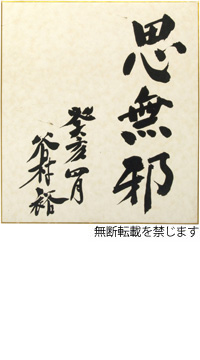 思無邪
癸亥四月
谷村裕
無断転載を禁じます